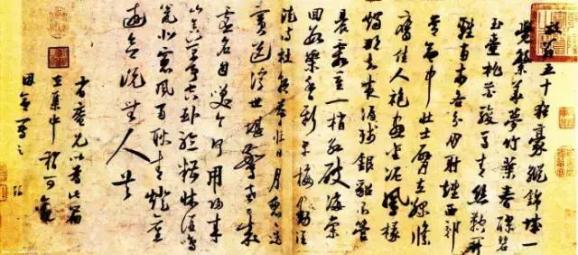 放翁五十猶豪縱錦城一
覺繁華夢竹葉春醪碧
玉壺桃花駿馬青絲鞚鬥
雞南市各分朋射雉西郊
常命中壯士臂立綠絛
鷹佳人袍畫金泥鳳椽
燭那知夜漏殘銀貂不管
晨霜重一梢紅破海棠
回數蕊香新早梅動酒
徒詩社朝暮忙日月匆匆迭
賓送浮世堪驚老已成
虛名自笑今何用歸來
山舍萬事空臥聽糟床酒鳴
甕北窗風雨耿青燈舊
遊欲說無人共
省菴兄以爲此篇
在集中稍可觀
因命寫之 游